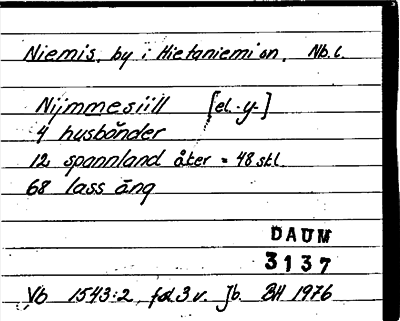 Niemis, by i Hietaniemi sn, Nb. l.
Nijmmesiill [el. -y-]
4 husbönder
12 spannland åker = 48 stl.
68 lass äng
DAUM
3137
Vb 1543:2, fol. 3 v. Jb. BH 1976